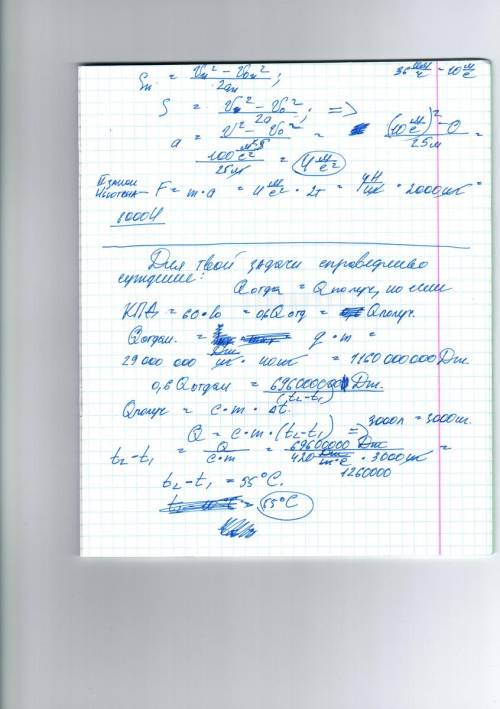 Sₙ = (Vₙ² − V₀ₙ²)/2aₙ ; 36 км/ч = 10 м/с
S = (Vₙ² − V₀²)/2a ; =>
a = (V² − V₀²)/ = ((10 м/с)² − 0)/25м =
(100 м²/с²)/25м = 4 м/с²
II закон Ньютона — F = m·a = 4 м/с² · 2т = 4 Н/кг · 2000 кг =
8000Н
Для твой задачи справедливо
суждение:
Qотда = Qполуч, но если
КПД = 60%, то = 0,6Q отд = Qполуч.
Qотдан. = q · m =
29 000 000 Дж/кг · 40 кг = 1160 000 000 Дж.
0,6 Qотдан = 696000000 Дж.
(t₂-t₁)
Qполуч = c·m·Δt.
Q = c·m·(t₂-t₁) => 3000л = 3000кг.
t₂-t₁ = Q/(c·m) = 69600000 Дж/(420 · 3000 кг) =
1260000
t₂-t₁ = 55°C.
55°C